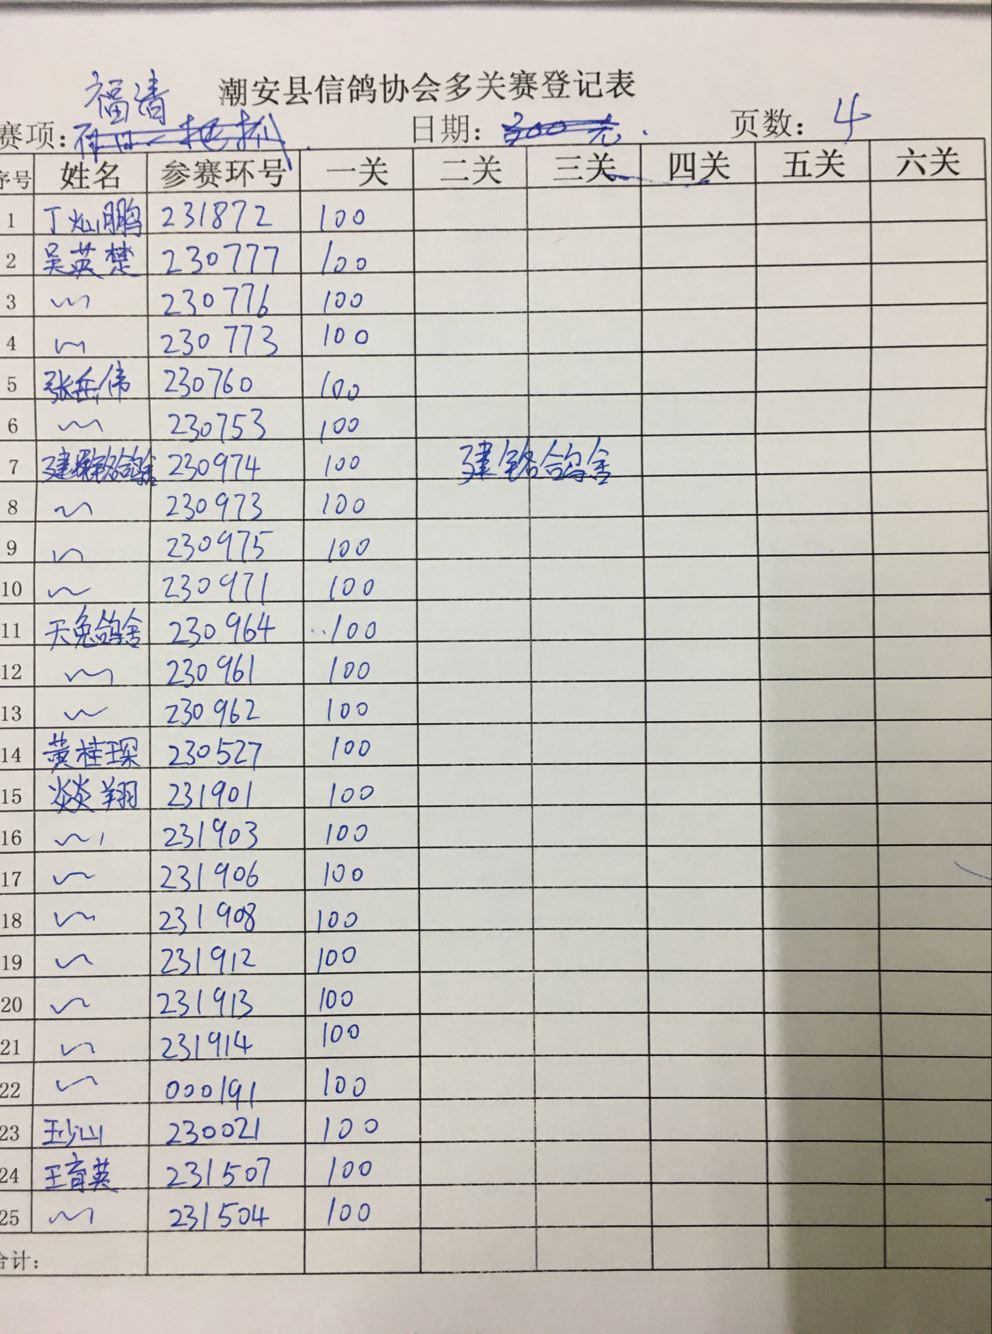 潮安县信鸽协会多关赛登记表
福清
赛项: 日期: 300元. 页数: 4
序号 姓名 参赛环号 一关 二关 三关 四关 五关 六关
1 丁灿鹏 231872 100
2 吴英楚 230777 100
3 〃 230776 100
4 〃 230773 100
5 张岳伟 230760 100
6 〃 230753 100
7 建铭鸽舍 230974 100 建铭鸽舍
8 〃 230973 100
9 〃 230975 100
10 〃 230971 100
11 天兔鸽舍 230964 100
12 〃 230961 100
13 〃 230962 100
14 黄桂琛 230527 100
15 焱炎翔 231901 100
16 〃 231903 100
17 〃 231906 100
18 〃 231908 100
19 〃 231912 100
20 〃 231913 100
21 〃 231914 100
22 〃 000191 100
23 王少山 230021 100
24 王育英 231507 100
25 〃 231504 100
合计: